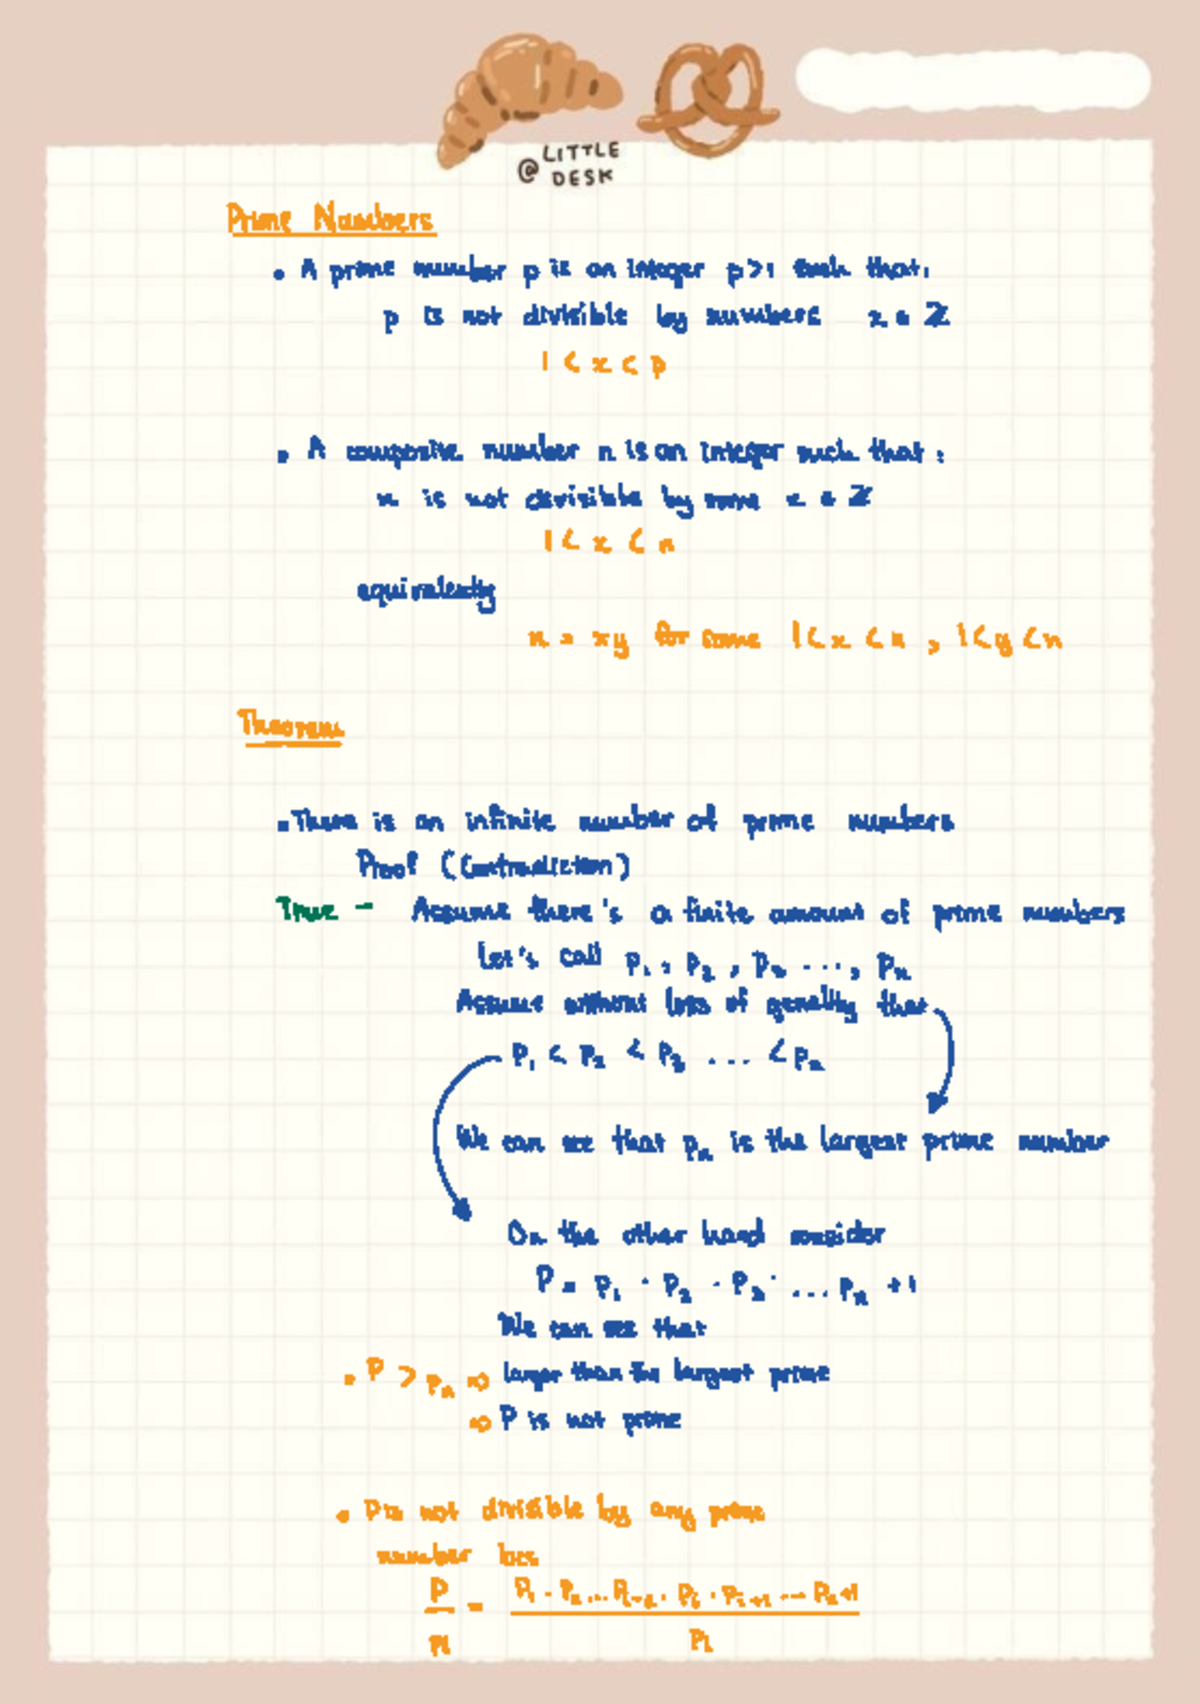 @ LITTLE
DESK
Prime Numbers
• A prime number p is an integer p>1 such that:
p is not divisible by numbers x ∈ ℤ
1 < x < p
• A composite number n is an integer such that:
n is not devisible by some x ∈ ℤ
1 < x < n
equivalently
n = xy for some 1 < x < n , 1 < y < n
Theorem
• There is an infinite number of prime numbers
Proof (Contradiction)
True - Assume there's a finite amount of prime numbers
Let's call p₁, p₂, p₃ ..., pₙ
Assume without loss of genality that
p₁ < p₂ < p₃ ... < pₙ
We can see that pₙ is the largest prime number
On the other hand consider
P = p₁ · p₂ · p₃ · ... pₙ + 1
We can see that
• P > pₙ ⇒ larger than the largest prime
⇒ P is not prime
• P is not divisible by any prime
number
P/pᵢ = p₁ · p₂ ... pᵢ₋₁ · pᵢ · pᵢ₊₁ ... pₙ+1 / pᵢ